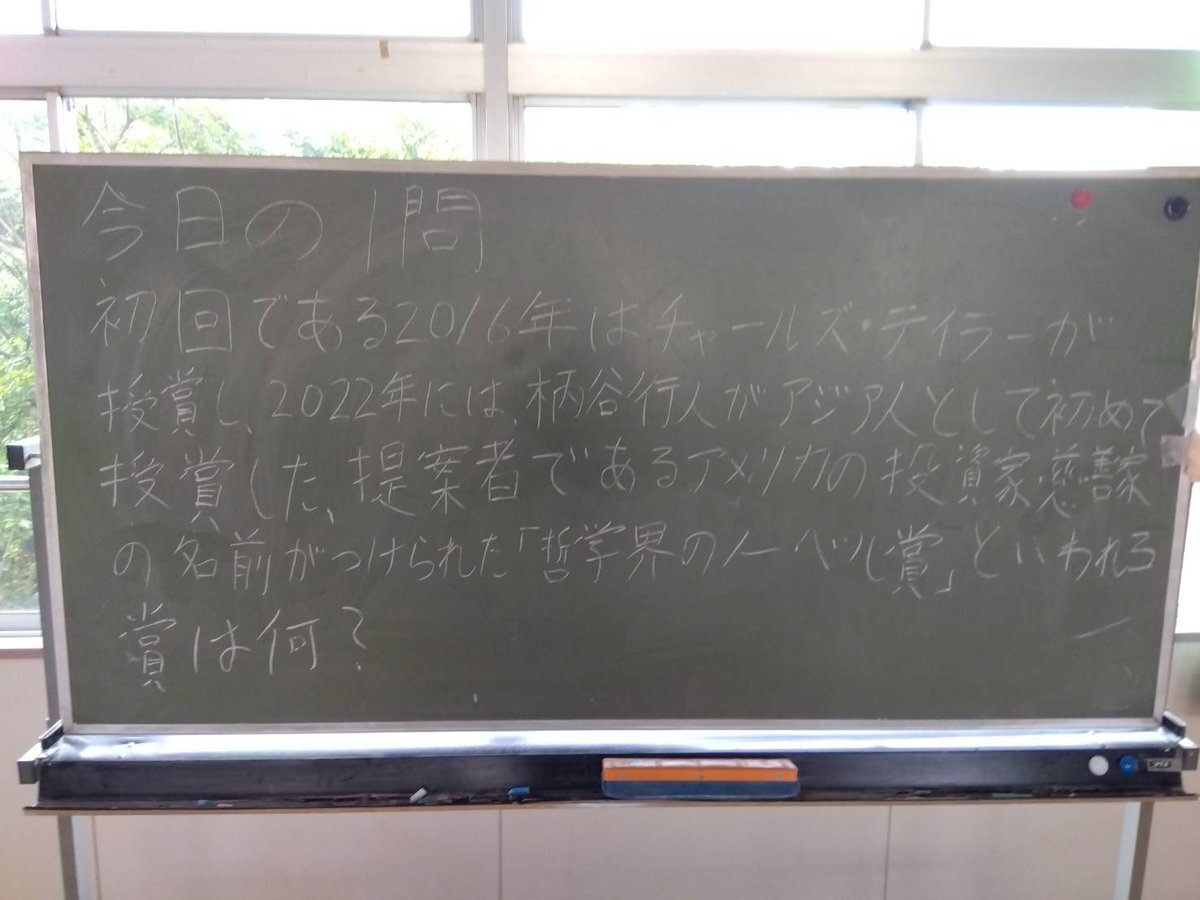 今日の1問
初回である2016年はチャールズ・テイラーが
授賞し、2022年には、柄谷行人がアジア人として初めて
授賞した、提案者であるアメリカの投資家・慈善家
の名前がつけられた「哲学界のノーベル賞」といわれる
賞は何?